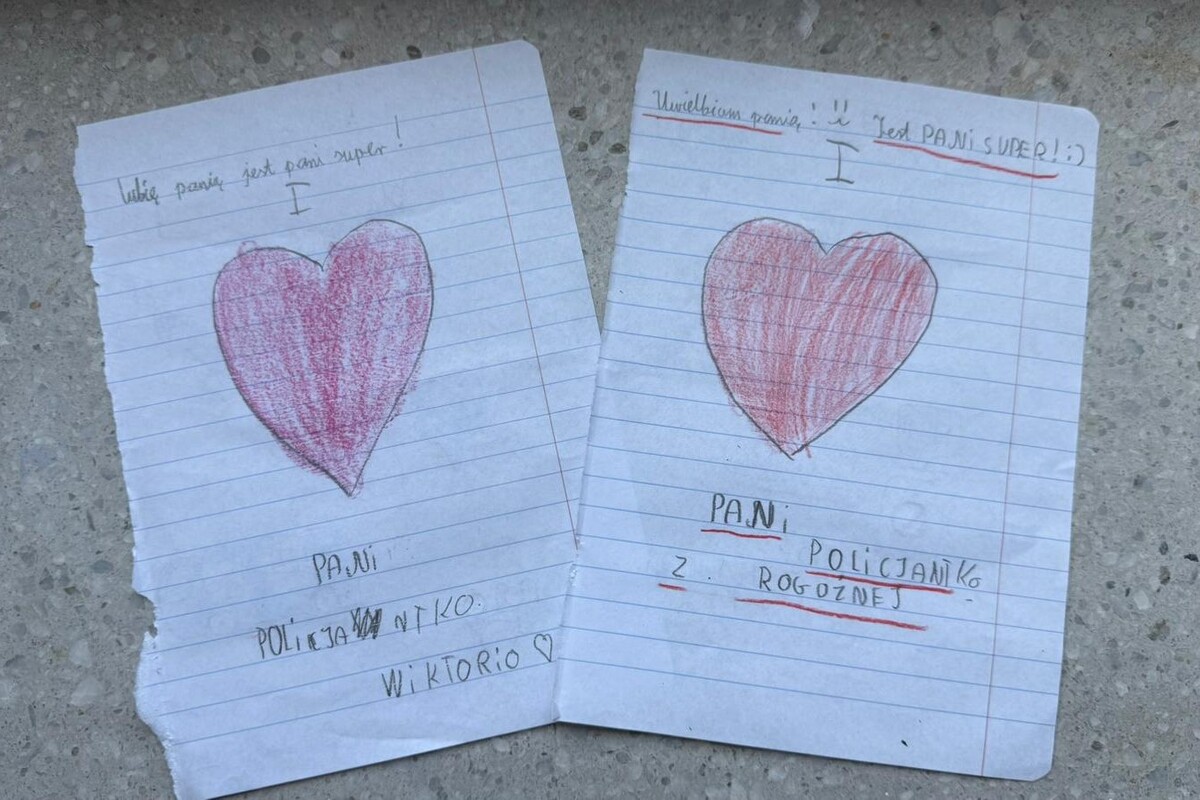 lubię panią jest pani super!
I
PANi
POLiCJANTKO.
WiKTORiO ♡
Uwielbiam panią! !! Jest PANi SUPER! :)
I
PANi
POLiCJANTKo
Z ROGOŹNEJ